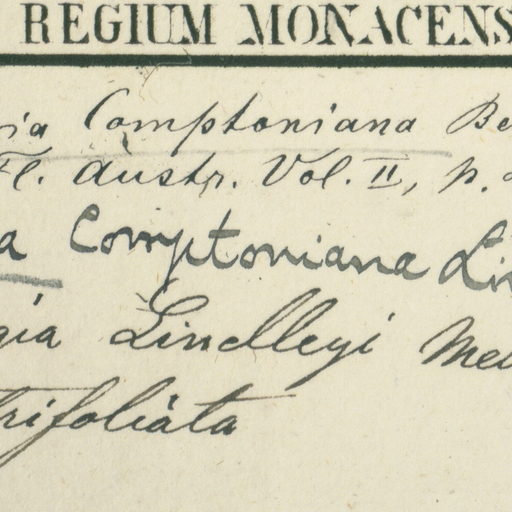 REGIUM MONACENS
ia Comptoniana Be
Fl. Austr. Vol. II, p.
a Comptoniana Lin
gia Lindleyi Mei
trifoliata